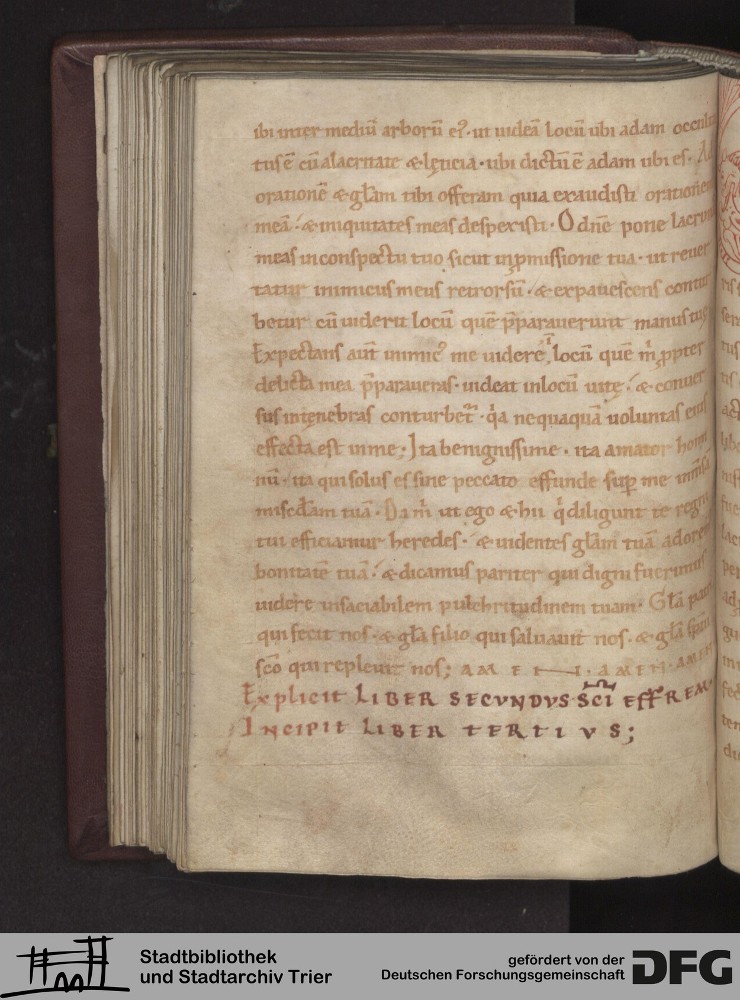 ibi inter mediũ arborũ eiꝰ · ut uideã locũ ubi adam occul
tus ẽ cũ alacritate & lęticia · ubi dictũ ẽ adam ubi es ·
orationẽ & gl̃am tibi offeram quia exaudisti orationem
meã · & iniquitates meas despexisti · O dñe pone lacrim
meas in conspectu tuo sicut in ꝓmissione tua · ut reuer
tatur inimicus meus retrorsũ · & expauescens contur
betur cũ uiderit locũ quẽ p̃parauerunt manus tuę
Expectans aũt inimicꝰ me uidere locũ quẽ m̃ ꝓpter
delicta mea p̃paraueras · uideat in locũ uitę · & conuer
sus in tenebras conturbet̃ · q̃a nequaquã uoluntas eius
effecta est in me · Ita benignissime · ita amator homi
nũ · ita qui solus es sine peccato effunde sup̱ me inm̃sã
miscd̃am tuã · Da m̃ ut ego & hii q̃ diligunt te regni
tui efficiamur heredes · & uidentes gl̃am tuã adorem
bonitatẽ tuã · & dicamus pariter qui digni fuerimus
uidere insaciabilem pulchritudinem tuam · Gl̃a patri
qui fecit nos · & gl̃a filio qui saluauit nos · & gl̃a sp̃ui
sc̃o qui repleuit nos; AMEN · AMEN · AMEN
Explicit LIBER SECVNDVS SC̃I EFFREM ·
INCIPIT LIBER TERTIVS;
Stadtbibliothek
und Stadtarchiv Trier
gefördert von der
Deutschen Forschungsgemeinschaft
DFG